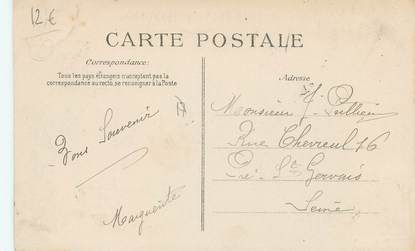 12 €
CARTE POSTALE
Correspondance:
Tous les pays étrangers n'acceptent pas la
correspondance au recto, se renseigner à la Poste
Adresse
Bons Souvenir
Marguerite
Monsieur J.
Rue Chevreul 16
Pré-St Gervais
Seine